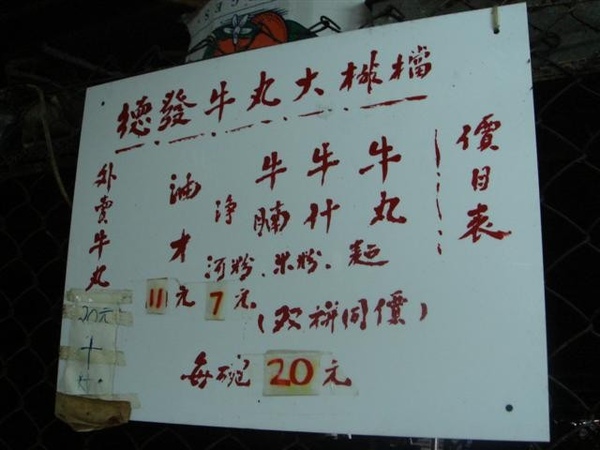 德發牛丸大棑檔
價目表
牛丸
牛什
牛腩
淨河粉、米粉、麵
7元
油才
11元
(双拼同價)
每碗20元
外賣牛丸
20元
十